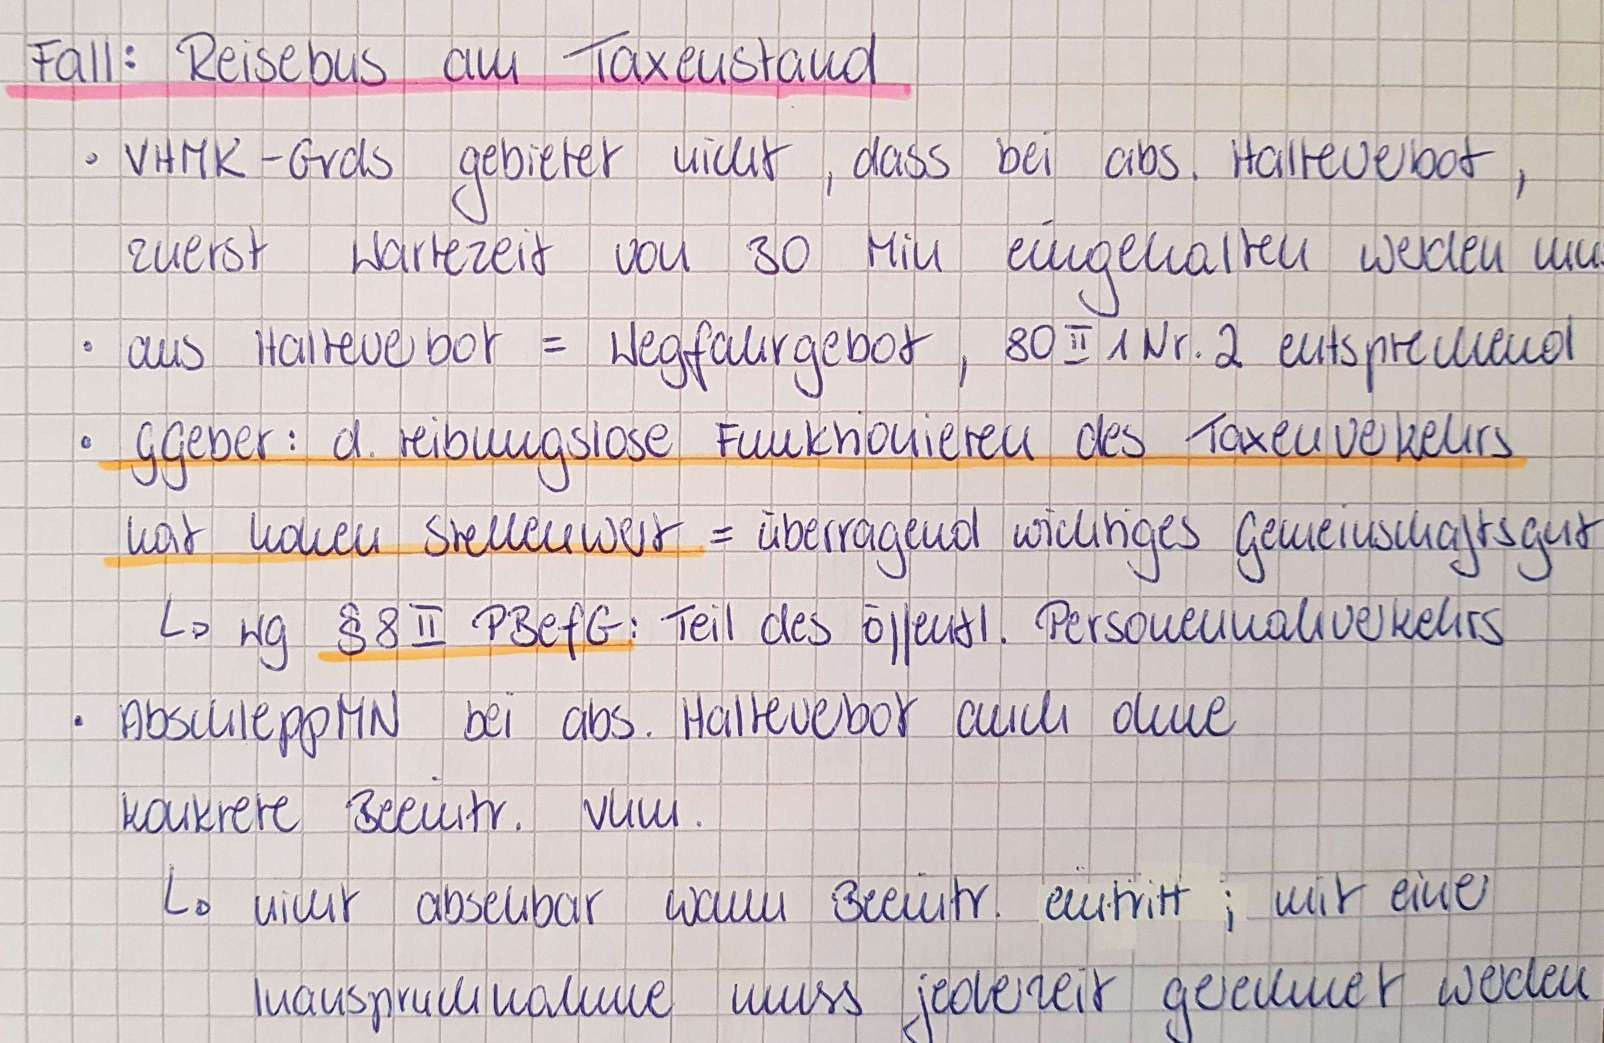 Fall: Reisebus am Taxenstand
• VHMK-Grds gebietet nicht, dass bei abs. Haltevebot,
zuerst Wartezeit von 30 Min eingehalten werden mu
• aus Haltevebot = Wegfahrgebot, 80 II 1 Nr. 2 entsprechend
• GGeber: d. reibungslose Funktionieren des Taxenvekehrs
hat hohen Stellenwert = überragend wichtiges Gemeinschaftsgut
↳ wg § 8 II PBefG: Teil des öffentl. Personennahvekehrs
• AbschleppMN bei abs. Haltevebot auch ohne
konkrete Beeintr. vhm.
↳ nicht absehbar wann Beeintr. eintritt; mit eine
Inanspruchnahme muss jedezeit gerechnet werden